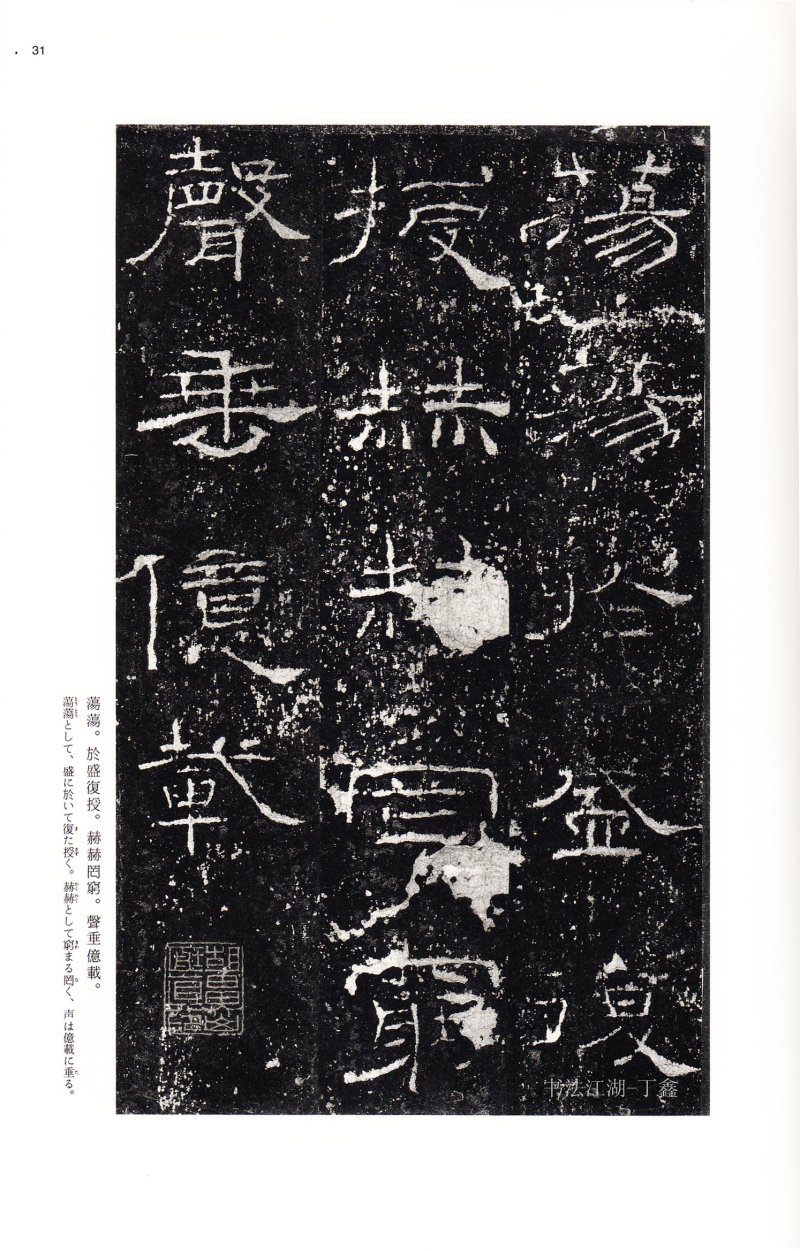 31
蕩蕩於盛復
授赫赫罔窮
聲垂億載
蕩蕩。於盛復授。赫赫罔窮。聲垂億載。
蕩蕩として、盛に於いて復た授く。赫赫として窮まる罔く、声は億載に垂る。
书法江湖-丁鑫